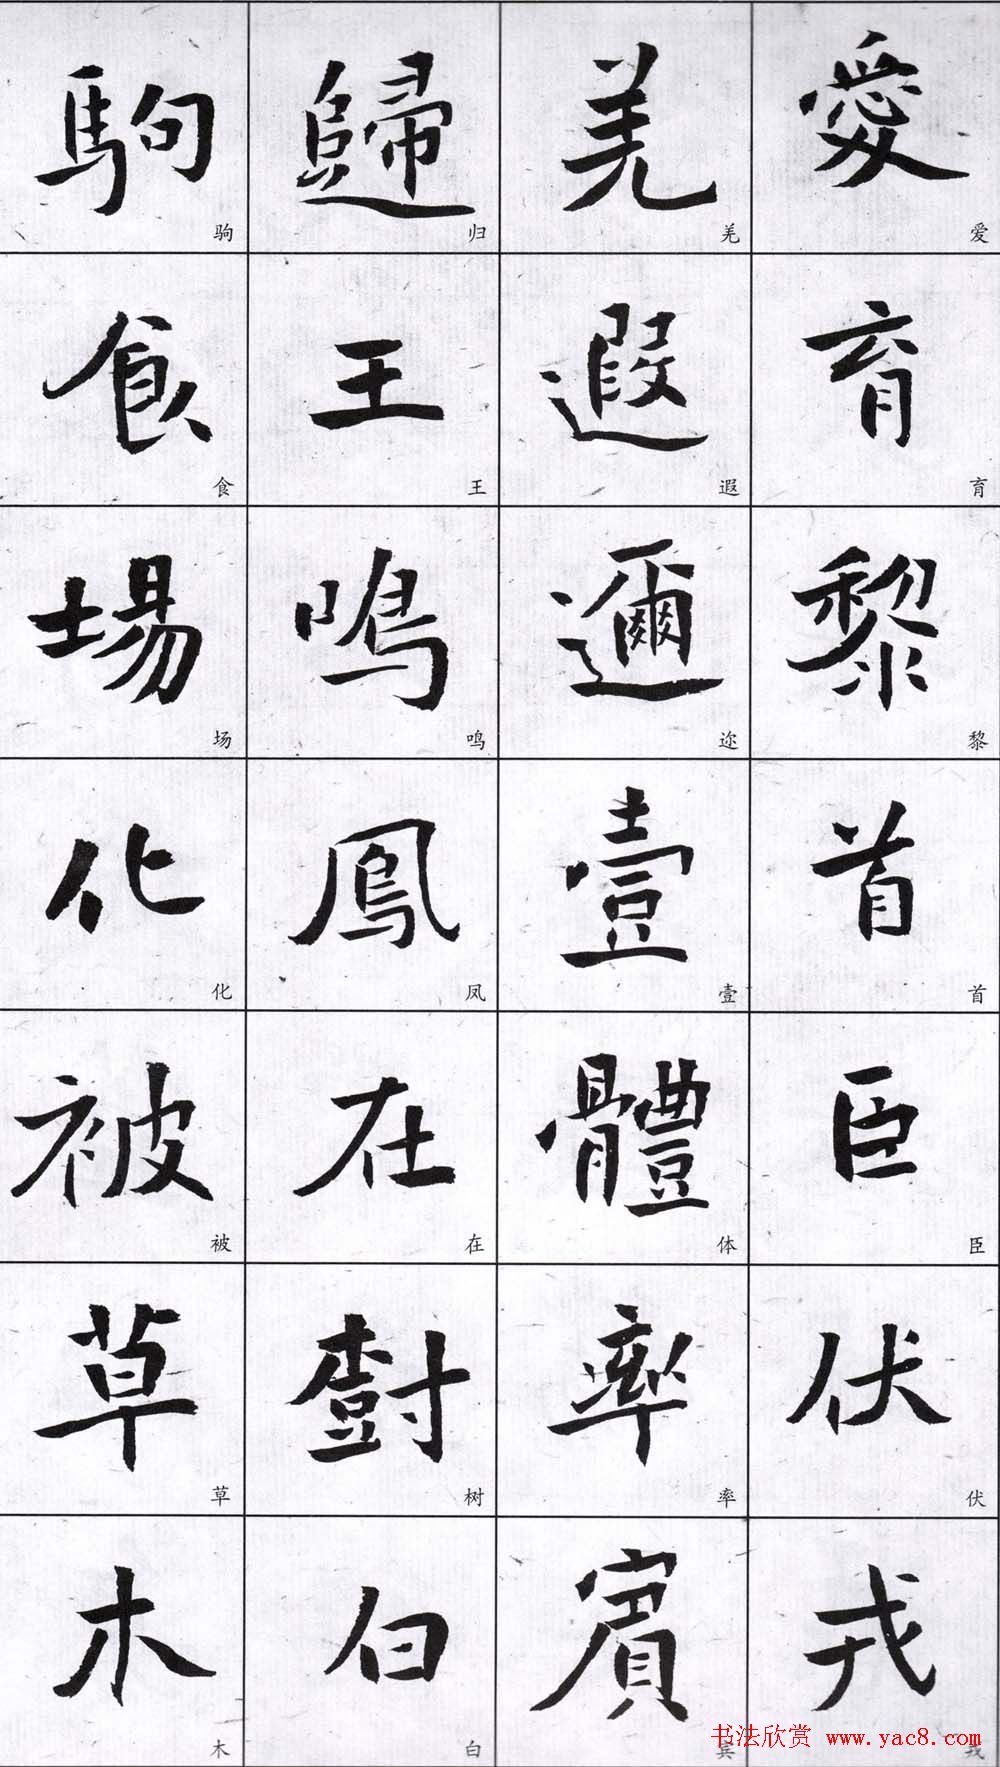 愛育黎首臣伏戎
爱育黎首臣伏戎
羌遐邇壹體率賓
羌遐迩壹体率宾
歸王鳴鳳在樹白
归王鸣凤在树白
駒食場化被草木
驹食场化被草木
书法欣赏 www.yac8.com